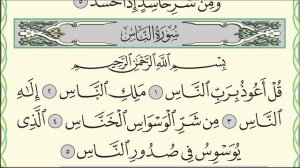 وَمِن شَرِّ حَاسِدٍ إِذَا حَسَدَ ٥
سُورَةُ النَّاسِ
بِسْمِ اللَّهِ الرَّحْمَٰنِ الرَّحِيمِ
قُلْ أَعُوذُ بِرَبِّ النَّاسِ ١ مَلِكِ النَّاسِ ٢ إِلَٰهِ
النَّاسِ ٣ مِن شَرِّ الْوَسْوَاسِ الْخَنَّاسِ ٤ الَّذِي
يُوَسْوِسُ فِي صُدُورِ النَّاسِ ٥